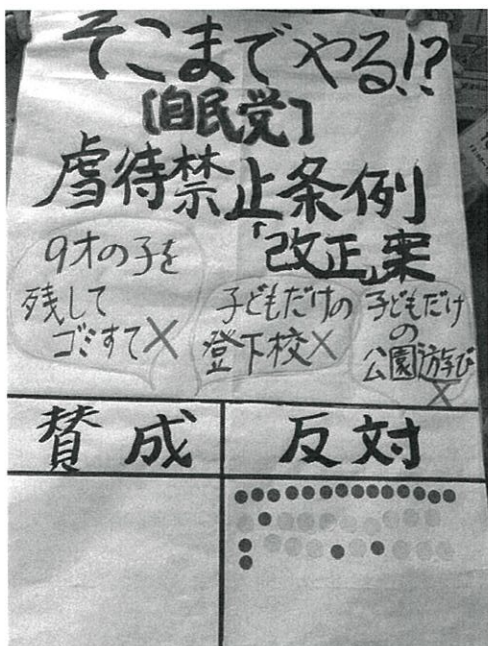 そこまでやる!?
[自民党]
虐待禁止条例
「改正」案
9才の子を
残して
ゴミすて×
子どもだけの
登下校×
子どもだけ
の
公園遊び
×
賛成
反対